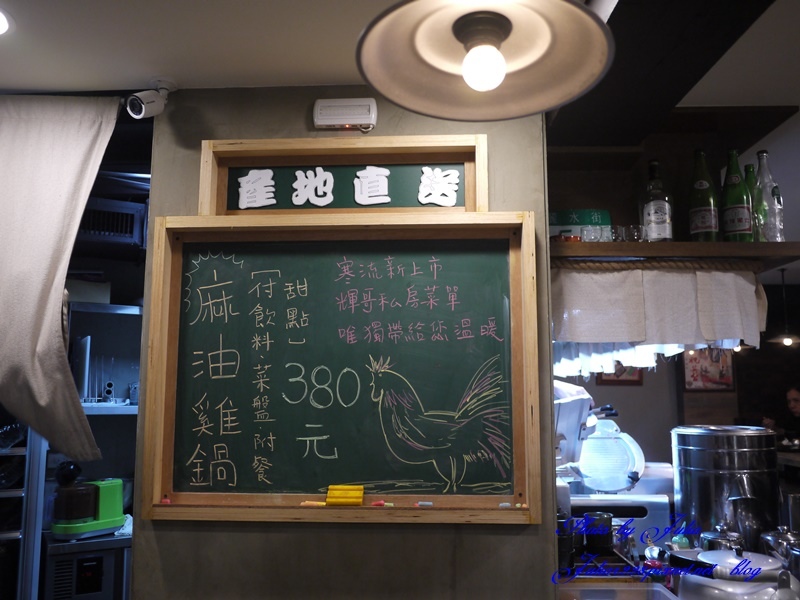 產地直送
寒流新上市
輝哥私房菜單
唯獨帶給您溫暖
麻油雞鍋
〔付飲料、菜盤、附餐
甜點〕
380
元
水街
Photo by
blog